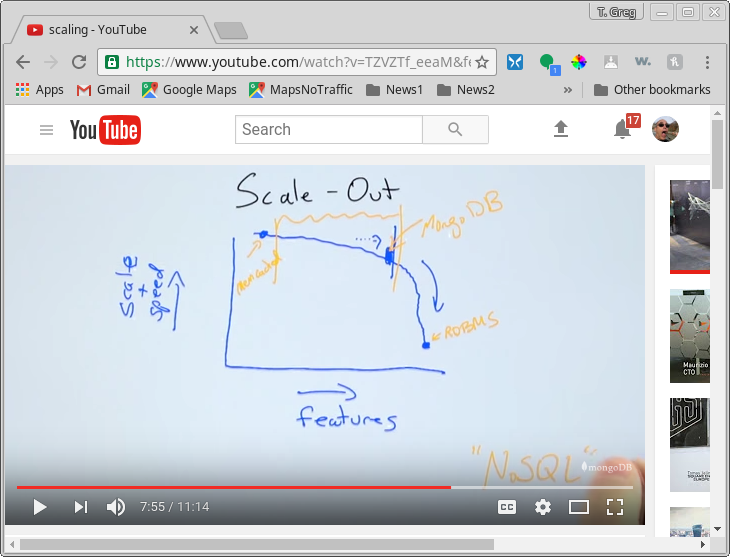 T. Greg
scaling - YouTube
https://www.youtube.com/watch?v=TZVZTf_eeaM&fe
1
Apps Gmail Google Maps MapsNoTraffic News1 News2 » Other bookmarks
YouTube
Search
17
Scale - Out
MongoDB
memcached
Scale
+
Speed
RDBMS
features
"NoSQL"
mongoDB
7:55 / 11:14
CC
Maurizio
CTO